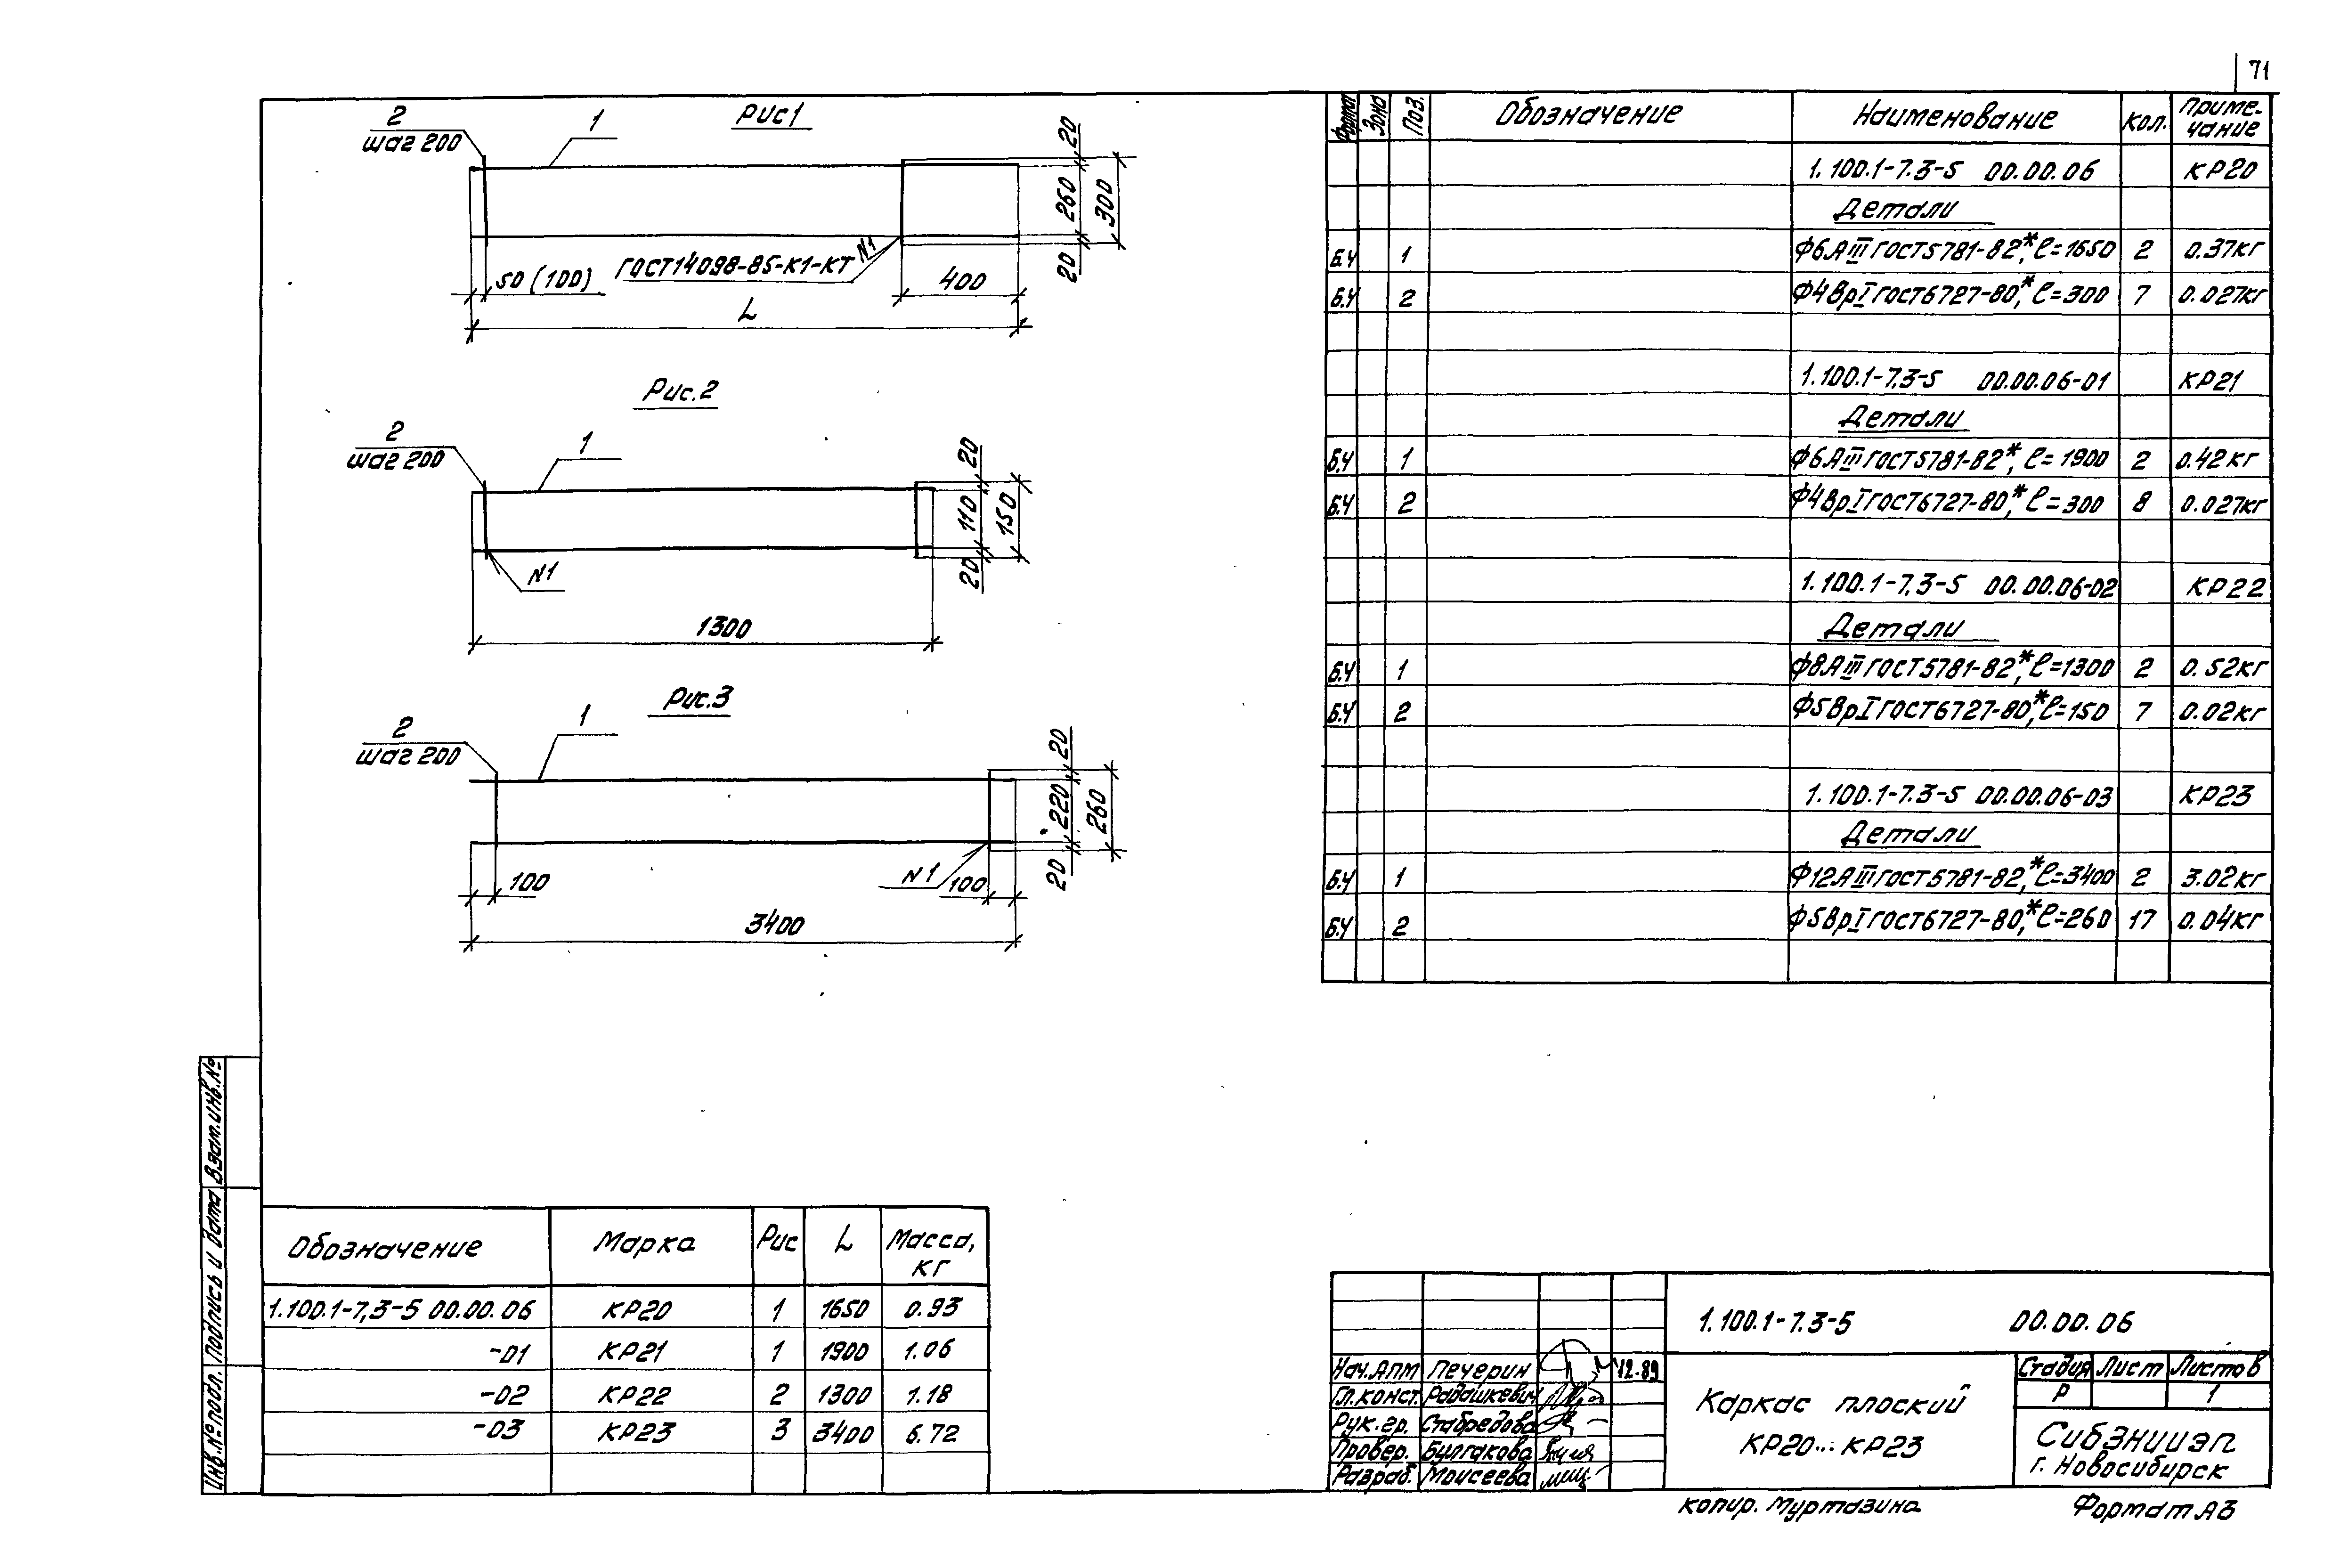 71
Рис1
2
шаг 200
1
20
260
300
20
50 (100)
ГОСТ14098-85-К1-КТ
N1
400
L
Рис.2
2
шаг 200
1
20
110
150
20
N1
1300
Рис.3
2
шаг 200
1
20
220
260
20
100
N1
100
3400
Формат Зона Поз. Обозначение Наименование Кол. Приме-
чание
1.100.1-7.3-5 00.00.06 КР20
Детали
Б.Ч 1 Ф6АIII ГОСТ5781-82*, ℓ=1650 2 0.37кг
Б.Ч 2 Ф4ВрI ГОСТ6727-80*, ℓ=300 7 0.027кг
1.100.1-7.3-5 00.00.06-01 КР21
Детали
Б.Ч 1 Ф6АIII ГОСТ5781-82*, ℓ=1900 2 0.42кг
Б.Ч 2 Ф4ВрI ГОСТ6727-80*, ℓ=300 8 0.027кг
1.100.1-7.3-5 00.00.06-02 КР22
Детали
Б.Ч 1 Ф8АIII ГОСТ5781-82*, ℓ=1300 2 0.52кг
Б.Ч 2 Ф5ВрI ГОСТ6727-80*, ℓ=150 7 0.02кг
1.100.1-7.3-5 00.00.06-03 КР23
Детали
Б.Ч 1 Ф12АIII ГОСТ5781-82*, ℓ=3400 2 3.02кг
Б.Ч 2 Ф5ВрI ГОСТ6727-80*, ℓ=260 17 0.04кг
Взам.инв.№
Подпись и дата
Инв.№ подл.
Обозначение Марка Рис L Масса,
кг
1.100.1-7,3-5 00.00.06 КР20 1 1650 0.93
-01 КР21 1 1900 1.06
-02 КР22 2 1300 1.18
-03 КР23 3 3400 6.72
1.100.1-7.3-5 00.00.06
Нач.АПМ Печерин 12.89
Гл.конст. Радашкевич
Рук.гр. Стабредова
Провер. Булгакова
Разраб. Моисеева
Каркас плоский
КР20...КР23
Стадия Лист Листов
Р 1
СибЗНИИЭП
г. Новосибирск
копир. Муртазина
Формат А3